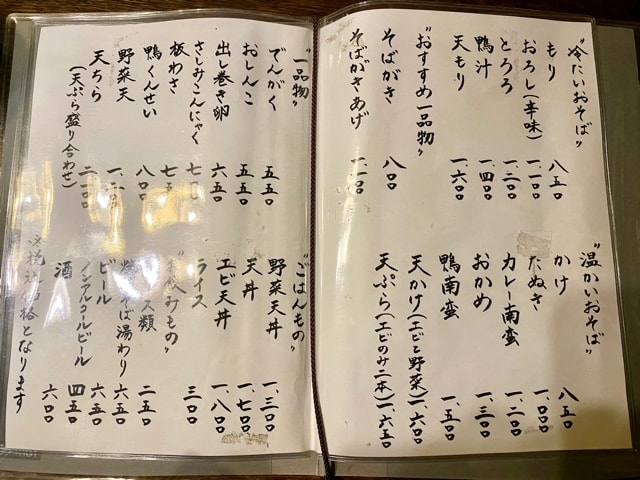 〝冷たいおそば〟
もり 八五〇
おろし(辛味) 一、一〇〇
とろろ 一、二〇〇
鴨汁 一、四〇〇
天もり 一、六〇〇
〝おすすめ一品物〟
そばがき 八〇〇
そばがきあげ 一、一〇〇
〝温かいおそば〟
かけ 八五〇
たぬき 一、〇〇〇
カレー南蛮 一、二〇〇
おかめ 一、三〇〇
鴨南蛮 一、五〇〇
天かけ(エビと野菜) 一、六〇〇
天ぷら(エビのみ二本) 一、六五〇
〝一品物〟
でんがく 五五〇
おしんこ 五五〇
出し巻き卵 六五〇
さしみこんにゃく
板わさ
鴨くんせい 八〇〇
野菜天
天ちら
(天ぷら盛り合わせ)
〝ごはんもの〟
野菜天丼 一、三〇〇
天丼 一、七〇〇
エビ天丼 一、八〇〇
ライス 三〇〇
みもの〟
ス類 二五〇
そば湯わり 六五〇
ビール 六五〇
ノンアルコールビール 四五〇
酒 六〇〇
格となります